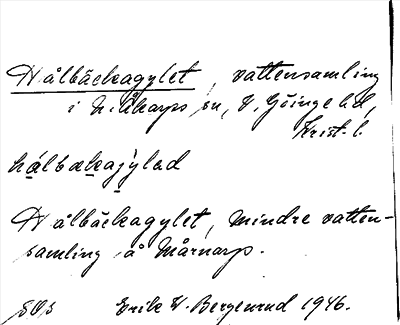 Hålbäckagylet, vattensamling
i N. Åkarps sn, V. Göinge hd,
Krist. l.
hålbækajyləd
Hålbäckagylet, mindre vatten-
samling å Mårnarp.
SOS Erik W. Bergenrud 1946.